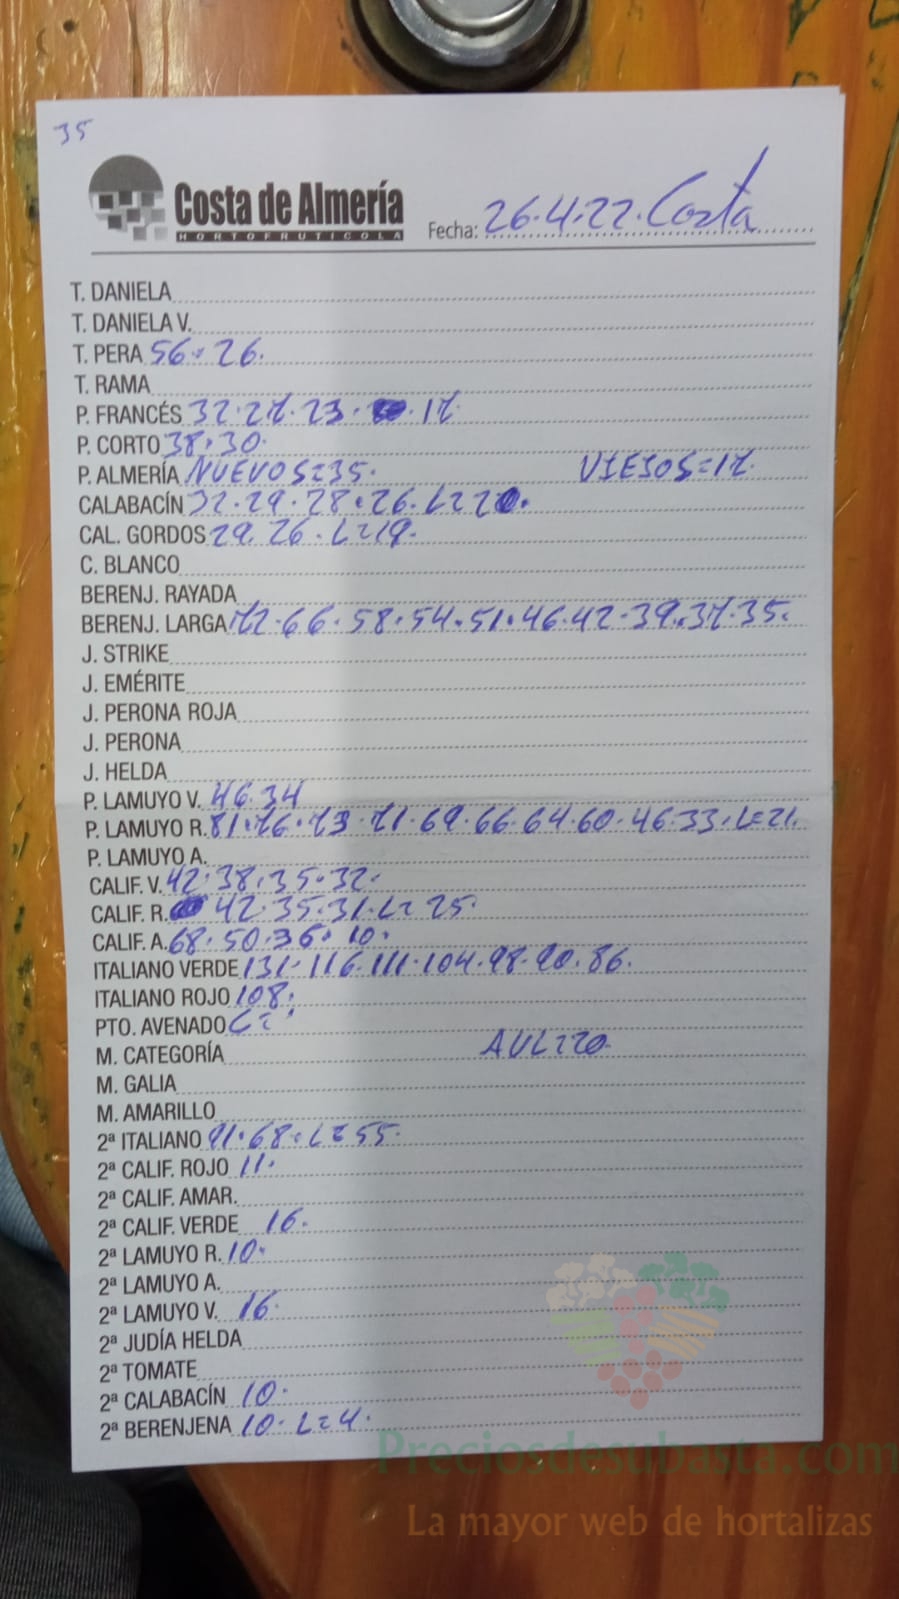 35
Costa de Almería
HORTOFRUTICOLA
Fecha: 26.4.22. Costa
T. DANIELA
T. DANIELA V.
T. PERA 56. 26.
T. RAMA
P. FRANCÉS 32.27.23. 17.
P. CORTO 38.30.
P. ALMERÍA NUEVOS=35. VIEJOS=17.
CALABACÍN 32.29.28.26.L=20.
CAL. GORDOS 29.26.L=19.
C. BLANCO
BERENJ. RAYADA
BERENJ. LARGA 72.66.58.54.51.46.42.39.37.35.
J. STRIKE
J. EMÉRITE
J. PERONA ROJA
J. PERONA
J. HELDA
P. LAMUYO V. 46.34
P. LAMUYO R. 81.76.73.71.69.66.64.60.46.33.L=21.
P. LAMUYO A.
CALIF. V. 42.38.35.32.
CALIF. R. 42.35.31.L=25.
CALIF. A. 68.50.36.10.
ITALIANO VERDE 131.116.111.104.98.90.86.
ITALIANO ROJO 108.
PTO. AVENADO
M. CATEGORÍA AVL=20.
M. GALIA
M. AMARILLO
2ª ITALIANO 91.68.L=55.
2ª CALIF. ROJO 11.
2ª CALIF. AMAR.
2ª CALIF. VERDE 16.
2ª LAMUYO R. 10.
2ª LAMUYO A.
2ª LAMUYO V. 16.
2ª JUDÍA HELDA
2ª TOMATE
2ª CALABACÍN 10.
2ª BERENJENA 10. L=4.
Preciosdesubasta.com
La mayor web de hortalizas